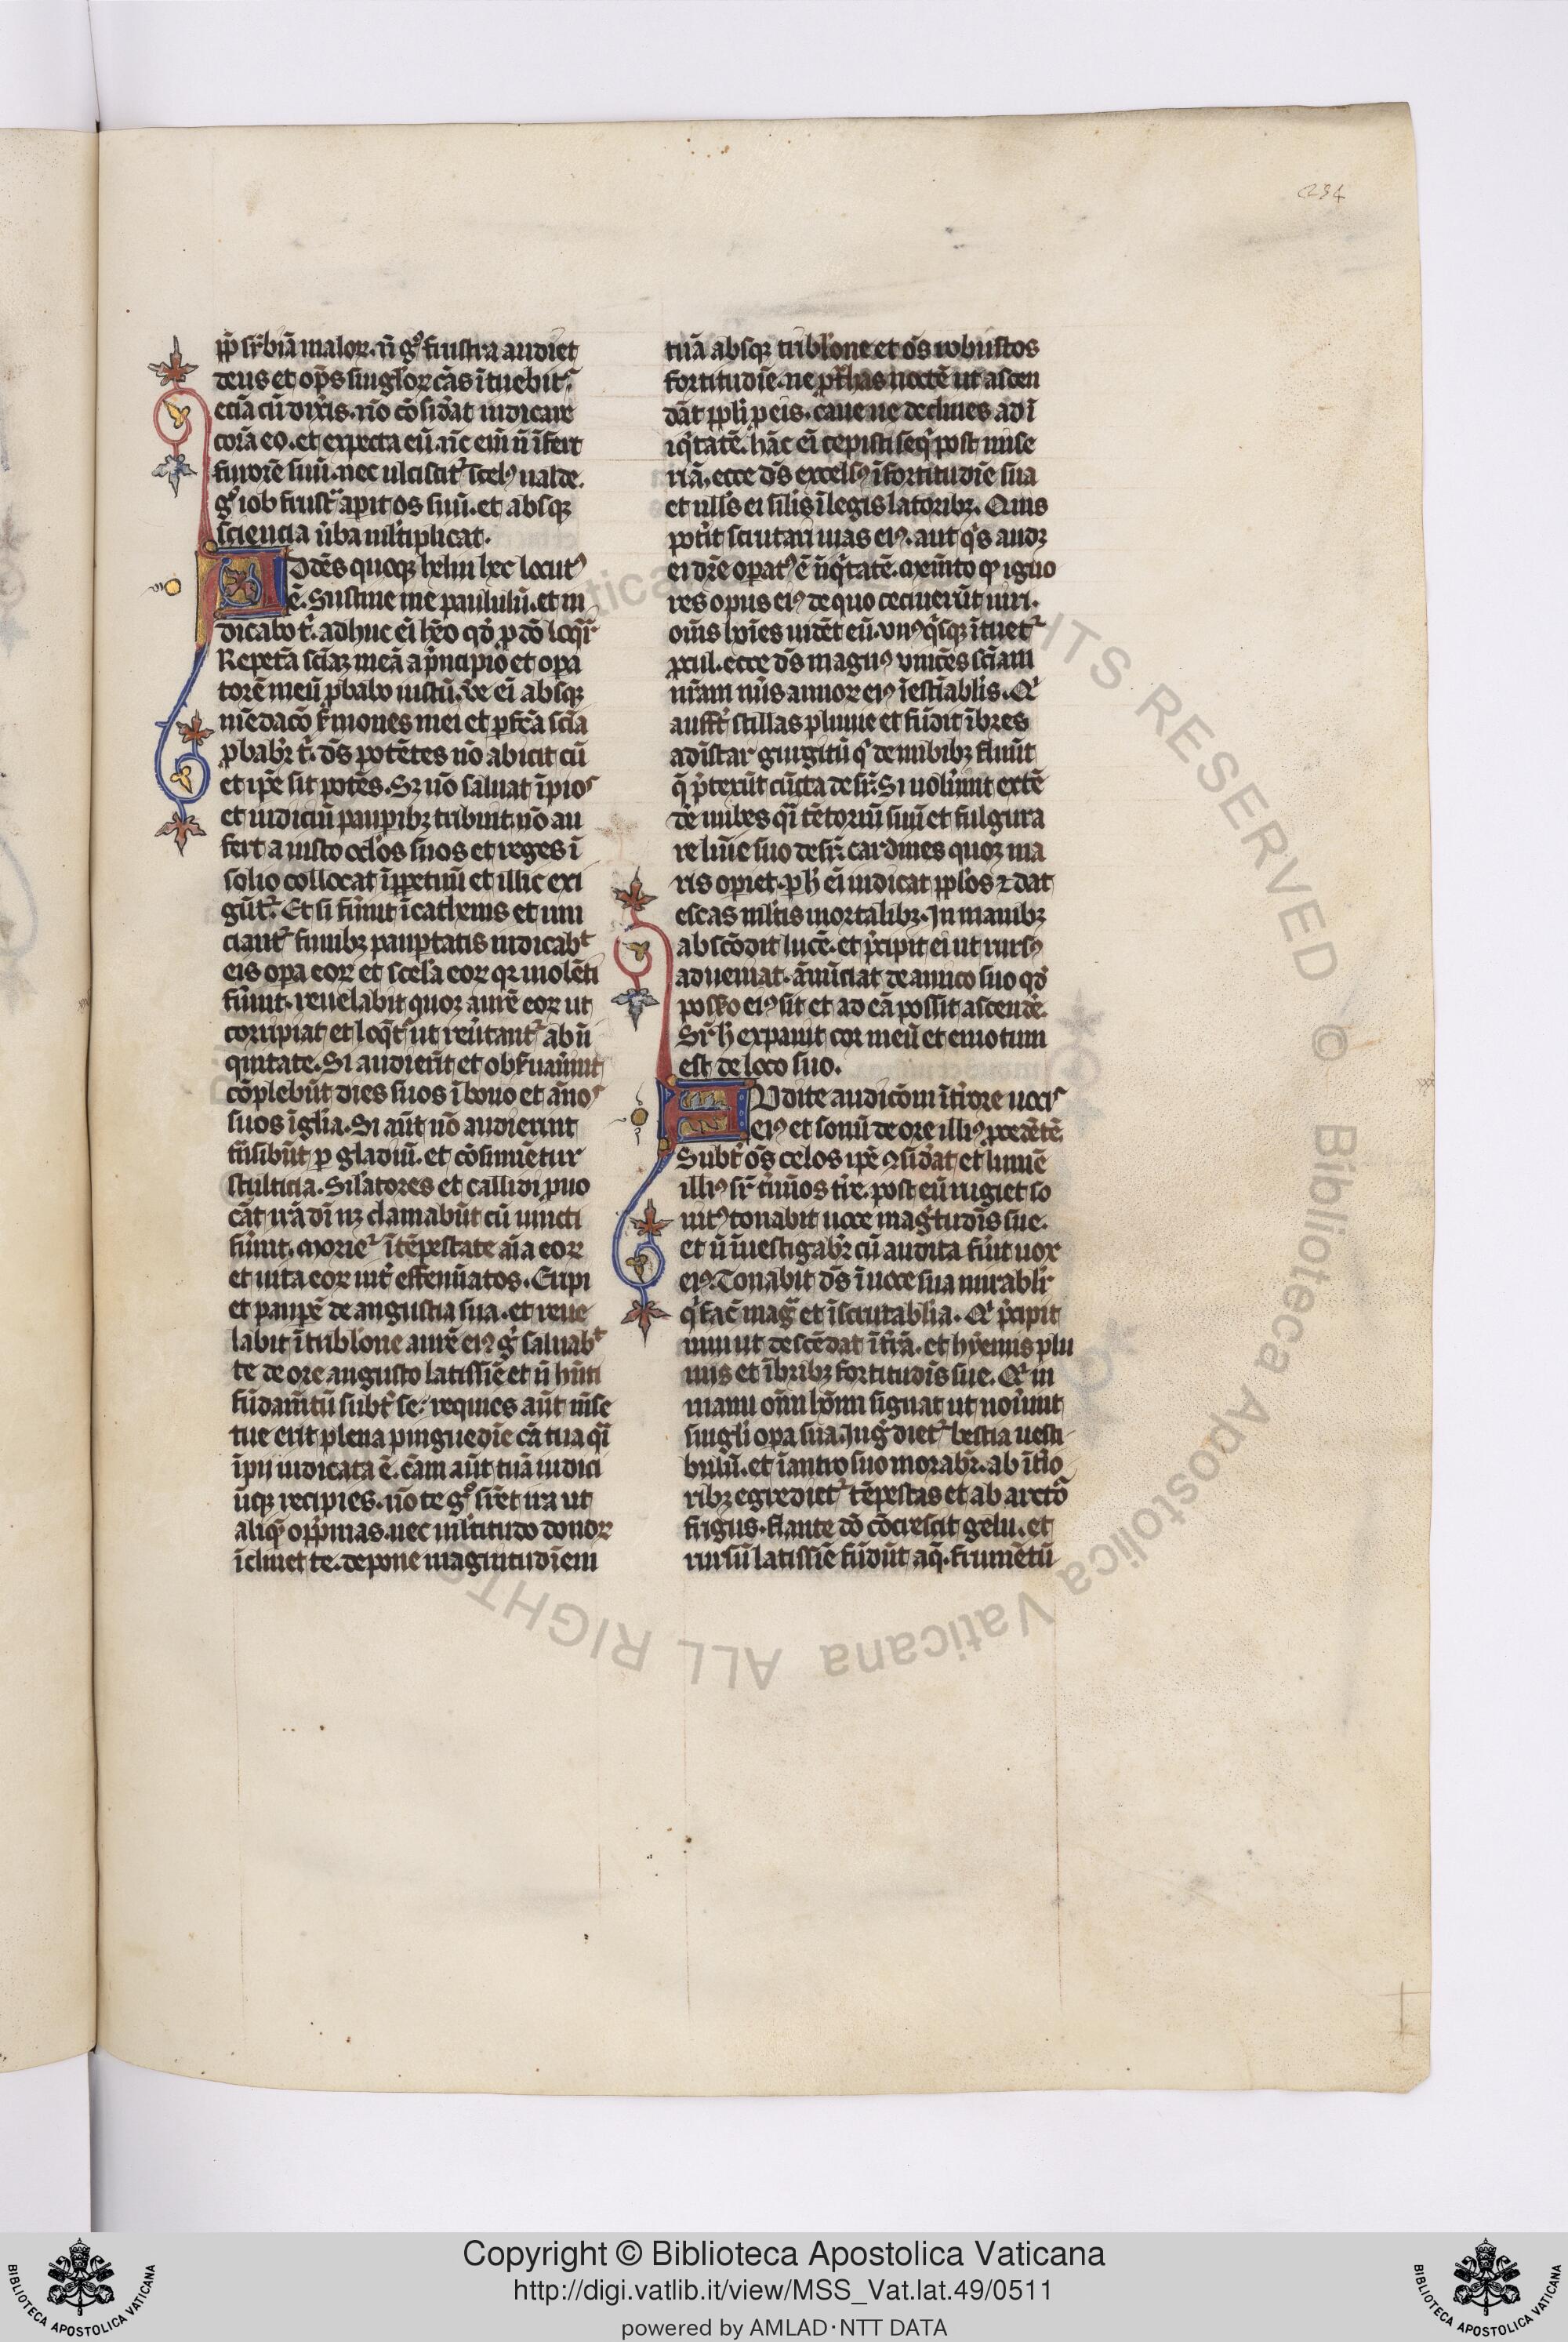 254
ꝓp̄ suꝑbiā maloꝝ. nō gͦ frustra audiet
deus et op̄s singl'oꝝ cās ītuebit᷑
eciā cū dix̾is. nō cōsid̾at iudicare
corā eo. et expecta eū. nc̄ em̄ nō īfert
furorē suū. nec ulciscit᷑ scel᷒ ualde.
gͦ iob frust̾ apit os suū. et absqꝫ
sciencia ūba ml'tiplicat.
Addēs quoqꝫ heliu hec locut᷒
ē. Sustine me paululū. et in
dicabo t'. adhuc em̄ hēo qd̾ ꝓ dō loq̄r᷑
Repetā sciāꝫ meā a p'ncipio et opa
torē meū ꝓbabo iustū. ūe em̄ absqꝫ
mēdacō s̾mones mei et ꝑfcā scīa
ꝓbabr̄ t'. ds̄ potētes nō abicit cū
et ipē sit potēs. Sꝫ nō saluat īpios
et iudiciū pauꝑibꝫ tribuit. nō au
fert a iusto oc̄l'os suos et reges ī
solio collocat īꝑpetuū et illic eri
gūt᷑. Et si fūint ī cathenis et uin
ciant᷑ funibꝫ pauꝑtatis indicabᵗ
eis opa eoꝝ et scel'a eoꝝ qꝛ uiolēti
fūint. reuelabit quoꝫ aurē eoꝝ ut
corripiat et loq̄t᷑ ut reūtant᷑ ab in
quitate. Si audierīt et obs̾uauīnt
cōplebūt dies suos ī bono et ānos
suos ī gl̄ia. Si aūt nō audierint
tn̄sibūt ꝑ gladiū. et cōsumētur
stulticia. Sil'atores et callidi ꝓuo
cāt irā dī nꝫ clamabūt cū uincti
fūint. Moriet᷑ ī tēpestate aīa eoꝝ
et uita eoꝝ int̾ effem̄iatos. Eripi
et paupē de angustia sua. et reue
labit ī tribl'one aurē ei᷒ gͥ saluabᵗ
te de ore angusto latissīe et nō hn̄ti
fūdam̄tū subt̾ se. requies aūt mn̄se
tue erit plena pinguedīe cā tua q̄i
īpii iudicata ē. cām aūt tuā iudici
ūqꝫ recipies. nō te gͦ suꝑet ira ut
aliq̄ opp̄mas. nec ml'titudo donoꝝ
īclinet te. depone magnitudīem
tuā absqꝫ tribl'one et ōs robustos
fortitudīe. ne ꝓt̾has noctē ut ascen
dāt ppl'i ꝑ eis. caue ne declines ad ī
iq̾tatē. hāc em̄ cepisti seq̄ post mise
riā. ecce ds̄ excels᷒ ī fortitudīe sua
et null's ei sil'is ī legis latoribꝫ. Quis
pot̾it scrutari uias ei᷒. aut q's audꝫ
ei dr̄e opat᷒ ē īiq̾tatē. Mem̄to qꝫ igno
res opus ei᷒ de quo cecinerūt uiri.
om̄s hoīes uidēt eū. vn᷒q'sqꝫ ītuet᷑
ꝓcul. ecce ds̄ magn᷒ uincēs sciam
nr̄am nūs annoꝝ ei᷒ īestīabl'is. Qͥ
auf̄t stillas pluuie et fūdit ībres
ad īstar gurgitū qͥ de nubibꝫ fluūt
q̄ p̄texūt cūcta desuꝑ. Si uoluīnt extē
d̾e nubes q̄i tētoriū suū et fulgura
re lumīe suo desuꝑ. cardines quoꝫ ma
ris opiet. ꝑ h̄ em̄ iudicat ppl'os ⁊ dat
escas ml'tis mortalibꝫ. In manibꝫ
abscōdit lucē. et p̄cipit ei ut rurs᷒
adueniat. ānūciat de amico suo qd̾
posses̄io ei᷒ sit et ad eā possit ascend̾e.
Suꝑ h̄ expauit cor meū et emotum
est de loco suo.
Audite audicōm ī t̾rore uocis
ei᷒ et sonū de ore illi᷒ ꝓcedētē.
Subt̾ ōs celos ipē ꝯsid̾at et lumē
illi᷒ suꝑ t̾mīos t̾re. post eū rugiet so
nit᷒ tonabit uoce mag̾tudīs sue.
et nō īuestigabr̄ cū audita fūit uox
ei᷒. Tonabit ds̄ ī uoce sua mirabl'r
qͥ fac̄ mag̾ et īscrutabl'ia. Qͥ p̄cipit
niui ut descēdat ī t̾rā. et hyemis plu
uiis et ībribꝫ fortitudīs sue. Qͥ in
manu oīm hoīm signat ut nouīnt
singl'i opa sua. Ing̾diet᷑ bestia uesti
bulū. et ī antro suo morabr̄. ab īt̾io
ribꝫ egrediet᷑ tēpestas et ab arcto
frigus. flante dō cōcrescit gelu. et
rursū latissīe fūdūt aq̄. frumētū
Copyright © Biblioteca Apostolica Vaticana
http://digi.vatlib.it/view/MSS_Vat.lat.49/0511
powered by AMLAD·NTT DATA
BIBLIOTECA APOSTOLICA VATICANA
BIBLIOTECA APOSTOLICA VATICANA
© Biblioteca Apostolica Vaticana ALL RIGHTS RESERVED